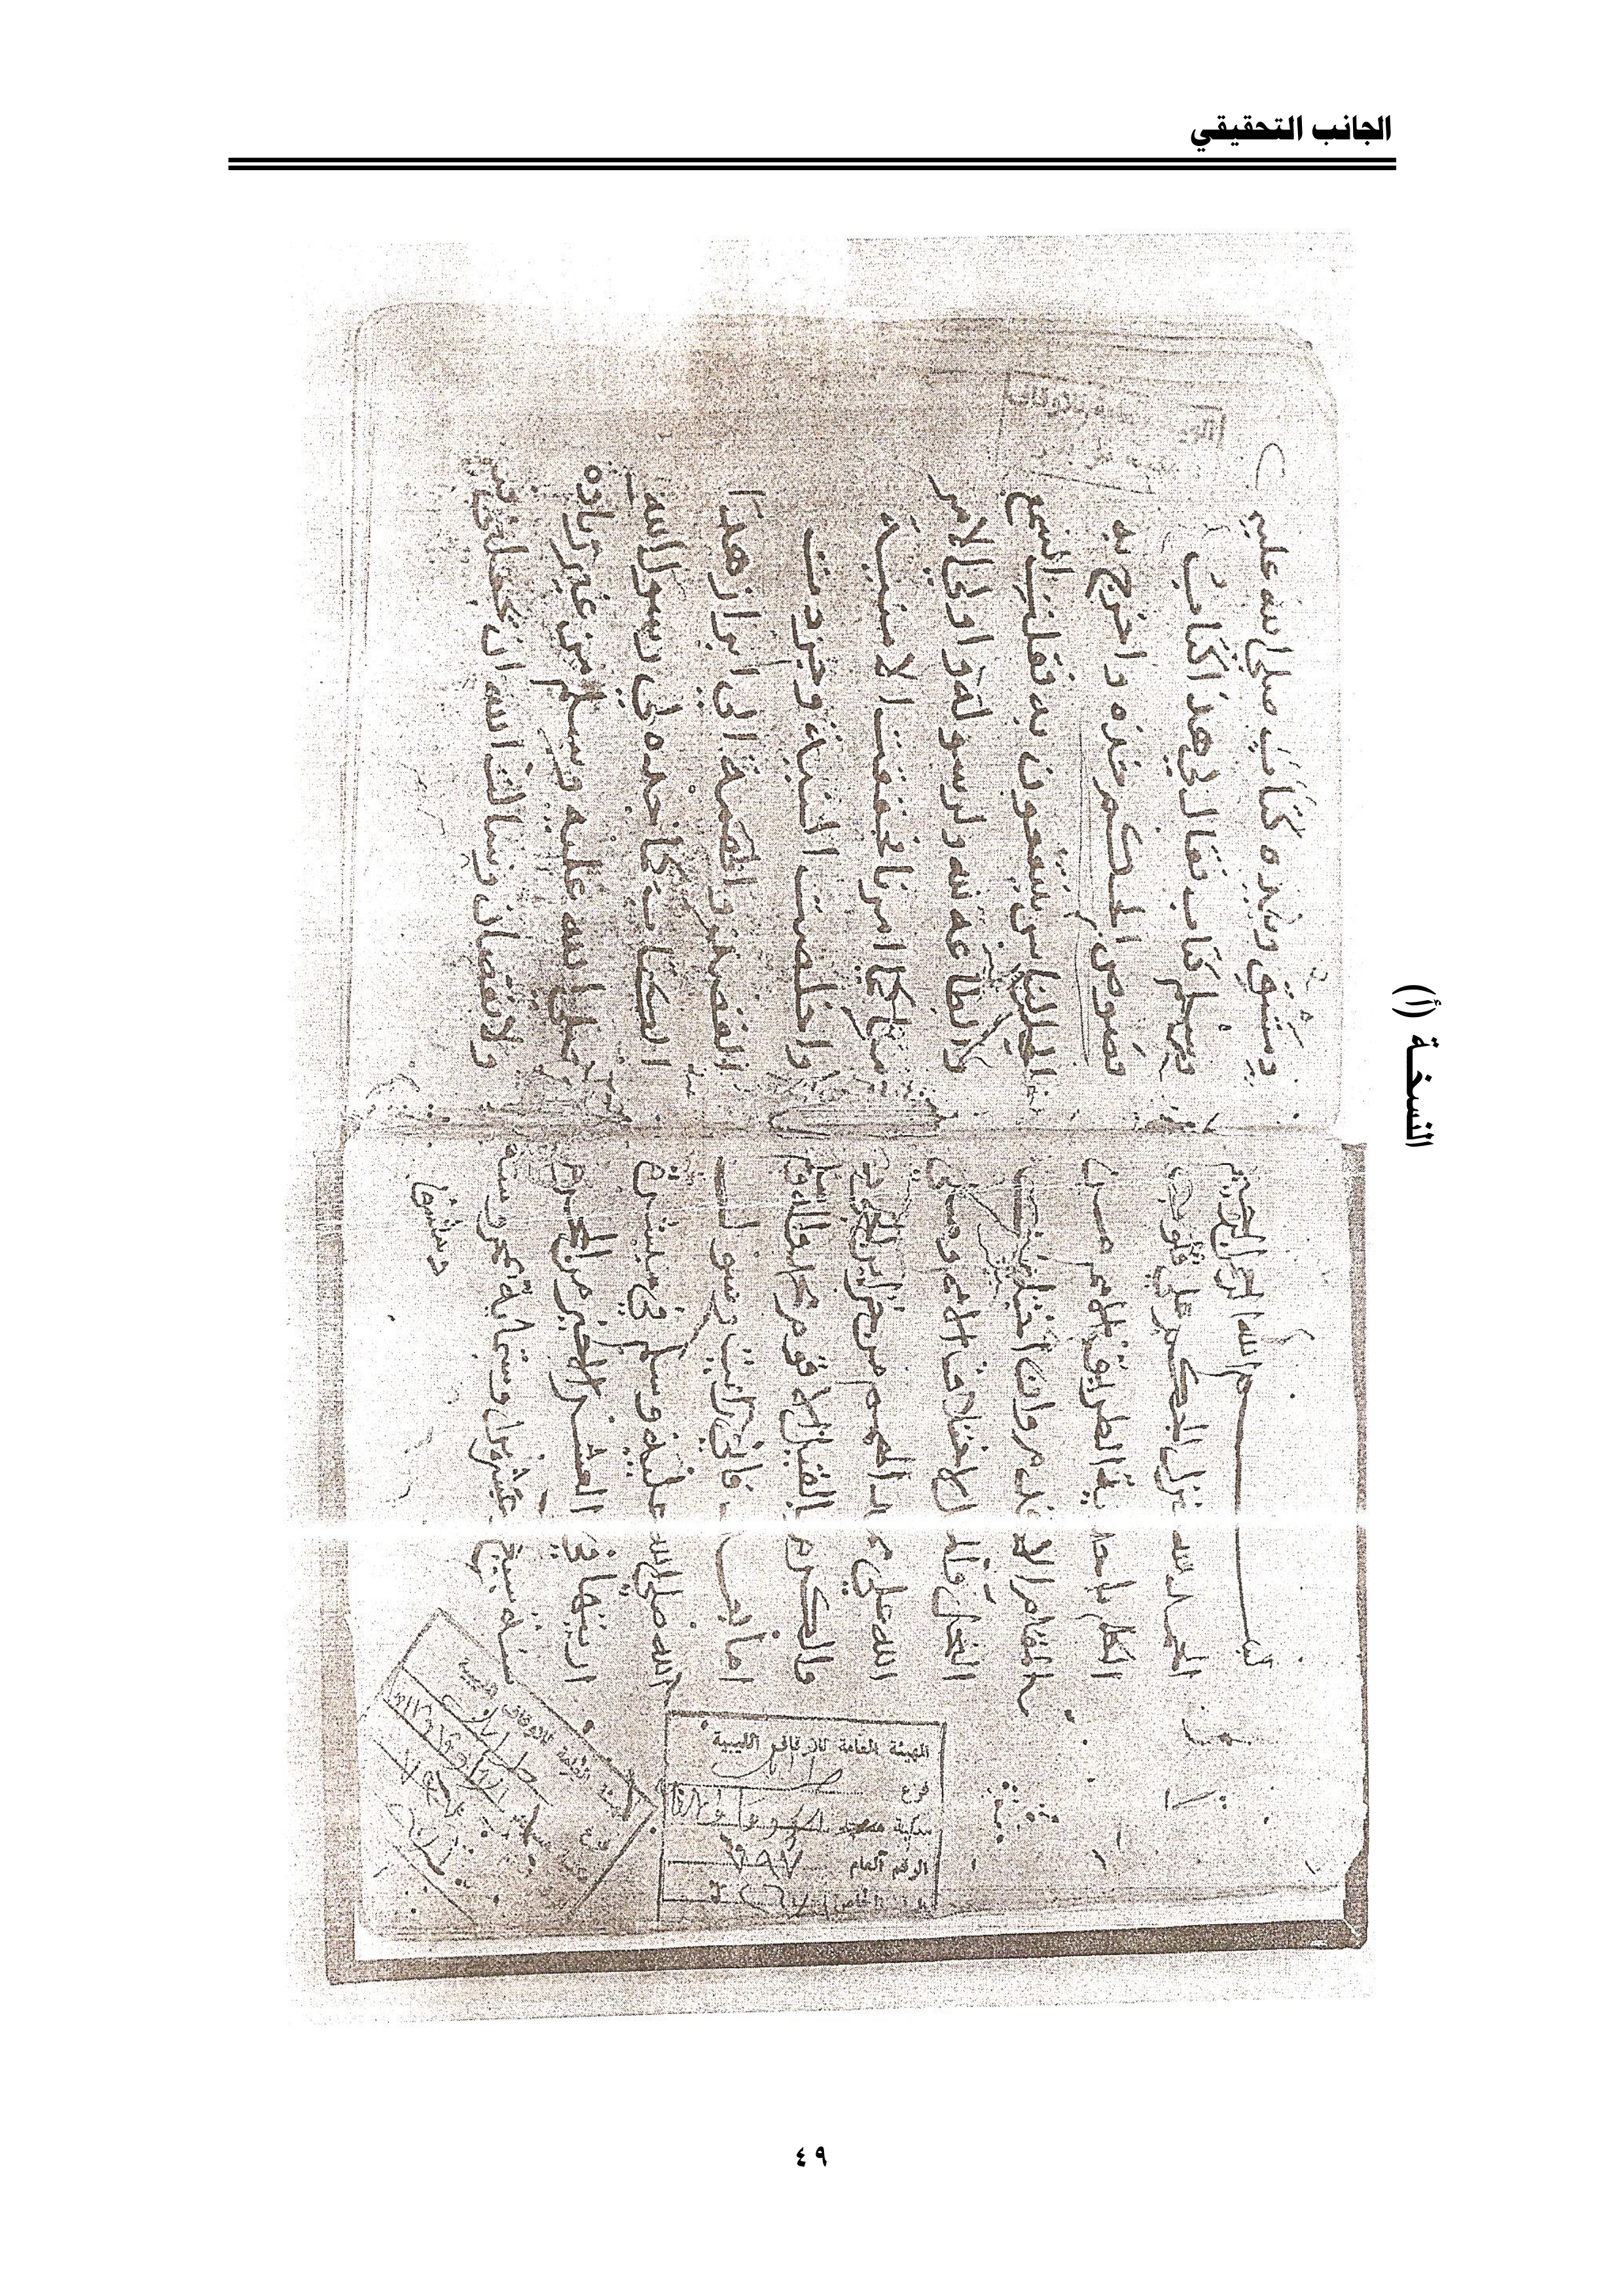 الجانب التحقيقي
النسخة (أ)
بسم الله الرحمن الرحيم
الحمد لله منزل الحكم علي قلوب
الكلم باحدية الطريق الامم من
المقام الاقدم وان اختلفت
النحل والملل لاختلاف الامم وصلي
الله علي ممد الهمم من خزاين الجود
والكرم بالقيل الاقوم محمد واله وسلم
اما بعد فاني رايت رسول
الله صلي الله عليه وسلم في مبشرة
اريتها في العشر الاخير من المحرم
سنة سبع وعشرين وستماية بمحروسة
دمشق
دمشق وبيده كتاب صلي الله عليه
وسلم كتاب فقال لي هذا كتاب
فصوص الحكم خذه واخرج به
الي الناس ينتفعون به فقلت السمع
والطاعه لله ولرسوله واولي الامر
منا كما امرنا فحققت الامنية
واخلصت النية وجردت
القصد والهمة الي ابراز هذا
الكتاب كما حده لي رسول الله
صلي الله عليه وسلم من غير زياده
ولا نقصان وسالت الله ان يجعلني فيه
الهيئة العامة للاوقاف الليبية
فرع
مكتبة
الرقم العام ٧٩٧
الرقم الخاص
٤٩